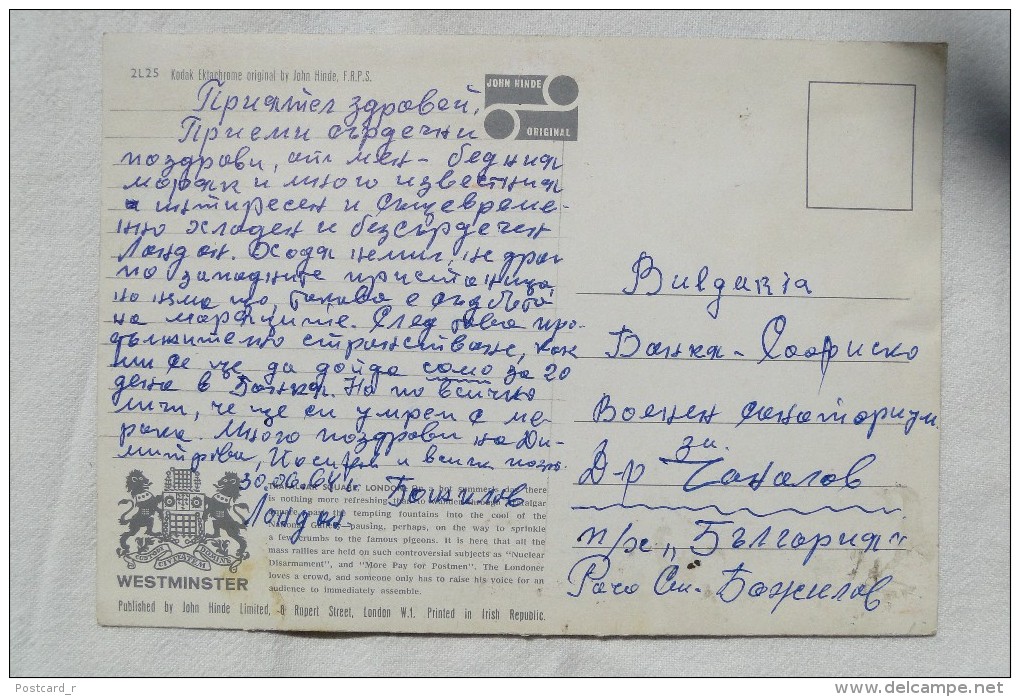 2L25 Kodak Ektachrome original by John Hinde, F.R.P.S.
JOHN HINDE
ORIGINAL
Приятел здравей,
Приеми сърдечни
поздрави, от мен - бедния
моряк и много известния
интересен и същевреме-
нно хладен и безсърдечен
Лондон. Ходя немил, не драг
по западните пристанища,
но няма що, такава е съдбата
на моряците. След това про-
дължително странстване, как
ми се ще да дойда само за 20
дена в Банкя. Но по всичко
личи, че ще си умрем с ме-
рака. Много поздрави на Ди-
митрова, и всички
30.06.64 г. Божилов
Лондон
TRAFALGAR SQUARE, LONDON. On a hot summer's day there
is nothing more refreshing than to wander through Trafalgar
Square, past the tempting fountains into the cool of the
National Gallery, pausing, perhaps, on the way to sprinkle
a few crumbs to the famous pigeons. It is here that all the
mass rallies are held on such controversial subjects as "Nuclear
Disarmament", and "More Pay for Postmen". The Londoner
loves a crowd, and someone only has to raise his voice for an
audience to immediately assemble.
CUSTODI CIVITATEM DOMINE
WESTMINSTER
Published by John Hinde Limited, 8 Rupert Street, London W.1. Printed in Irish Republic.
Bulgaria
Банкя - Софийско
Военен санаториум
за
Д-р Чакалов
п/х „България"
Рачо Ст. Божилов
Postcard_r
www.delcampe.net